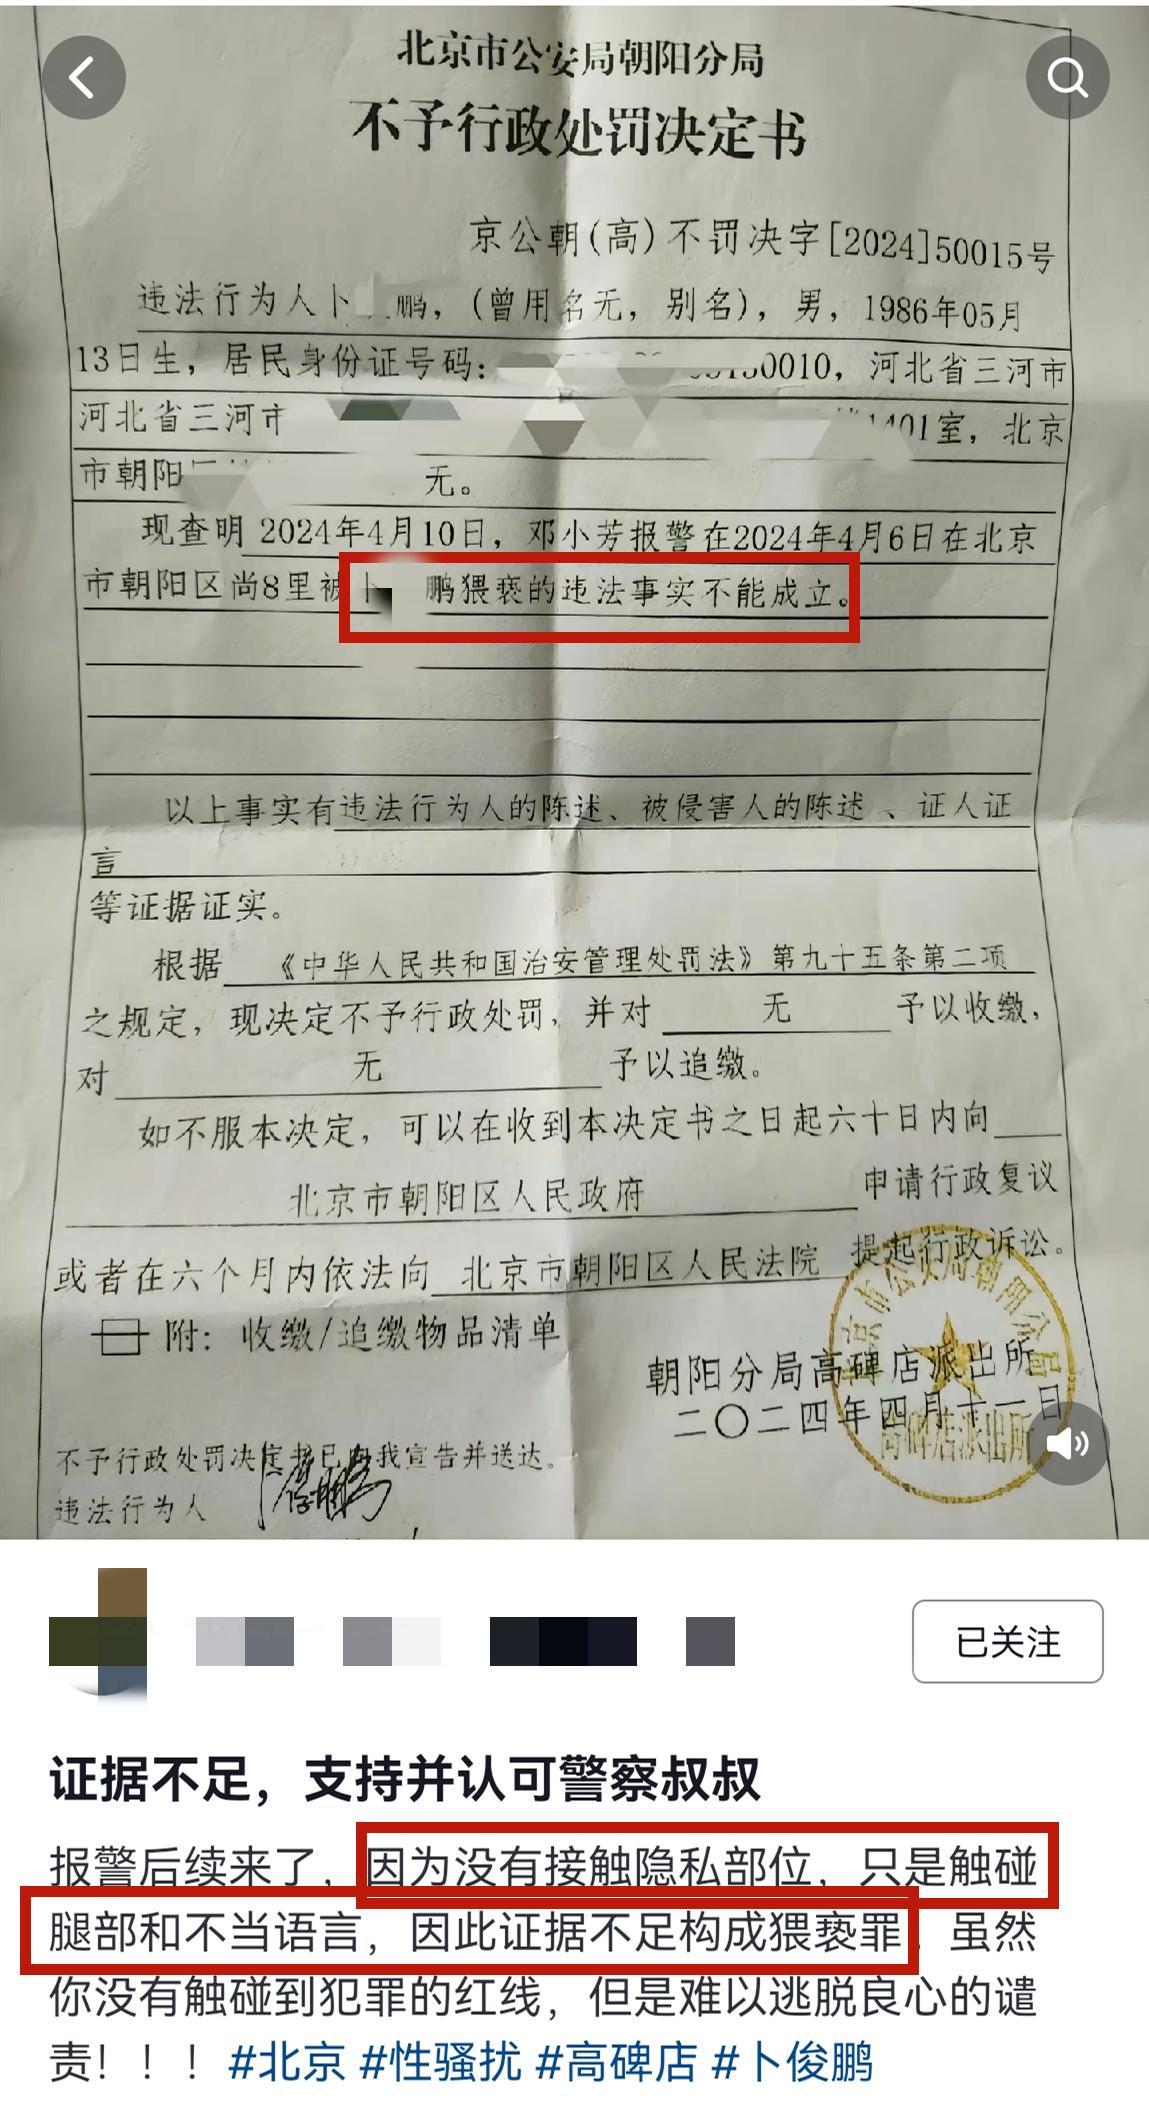 北京市公安局朝阳分局
不予行政处罚决定书
京公朝(高)不罚决字[2024]50015号
违法行为人卜 鹏，(曾用名无，别名)，男，1986年05月
13日生，居民身份证号码： 0010，河北省三河市
河北省三河市 1401室，北京
市朝阳 无。
现查明2024年4月10日，邓小芳报警在2024年4月6日在北京
市朝阳区尚8里被卜 鹏猥亵的违法事实不能成立。
以上事实有违法行为人的陈述、被侵害人的陈述、证人证
言
等证据证实。
根据《中华人民共和国治安管理处罚法》第九十五条第二项
之规定，现决定不予行政处罚，并对 无 予以收缴，
对 无 予以追缴。
如不服本决定，可以在收到本决定书之日起六十日内向
北京市朝阳区人民政府 申请行政复议
或者在六个月内依法向 北京市朝阳区人民法院 提起行政诉讼。
附：收缴/追缴物品清单
朝阳分局高碑店派出所
二〇二四年四月十一日
北京市公安局朝阳分局
高碑店派出所
不予行政处罚决定书已向我宣告并送达。
违法行为人
已关注
证据不足，支持并认可警察叔叔
报警后续来了，因为没有接触隐私部位，只是触碰
腿部和不当语言，因此证据不足构成猥亵罪 虽然
你没有触碰到犯罪的红线，但是难以逃脱良心的谴
责！！！#北京 #性骚扰 #高碑店 #卜俊鹏